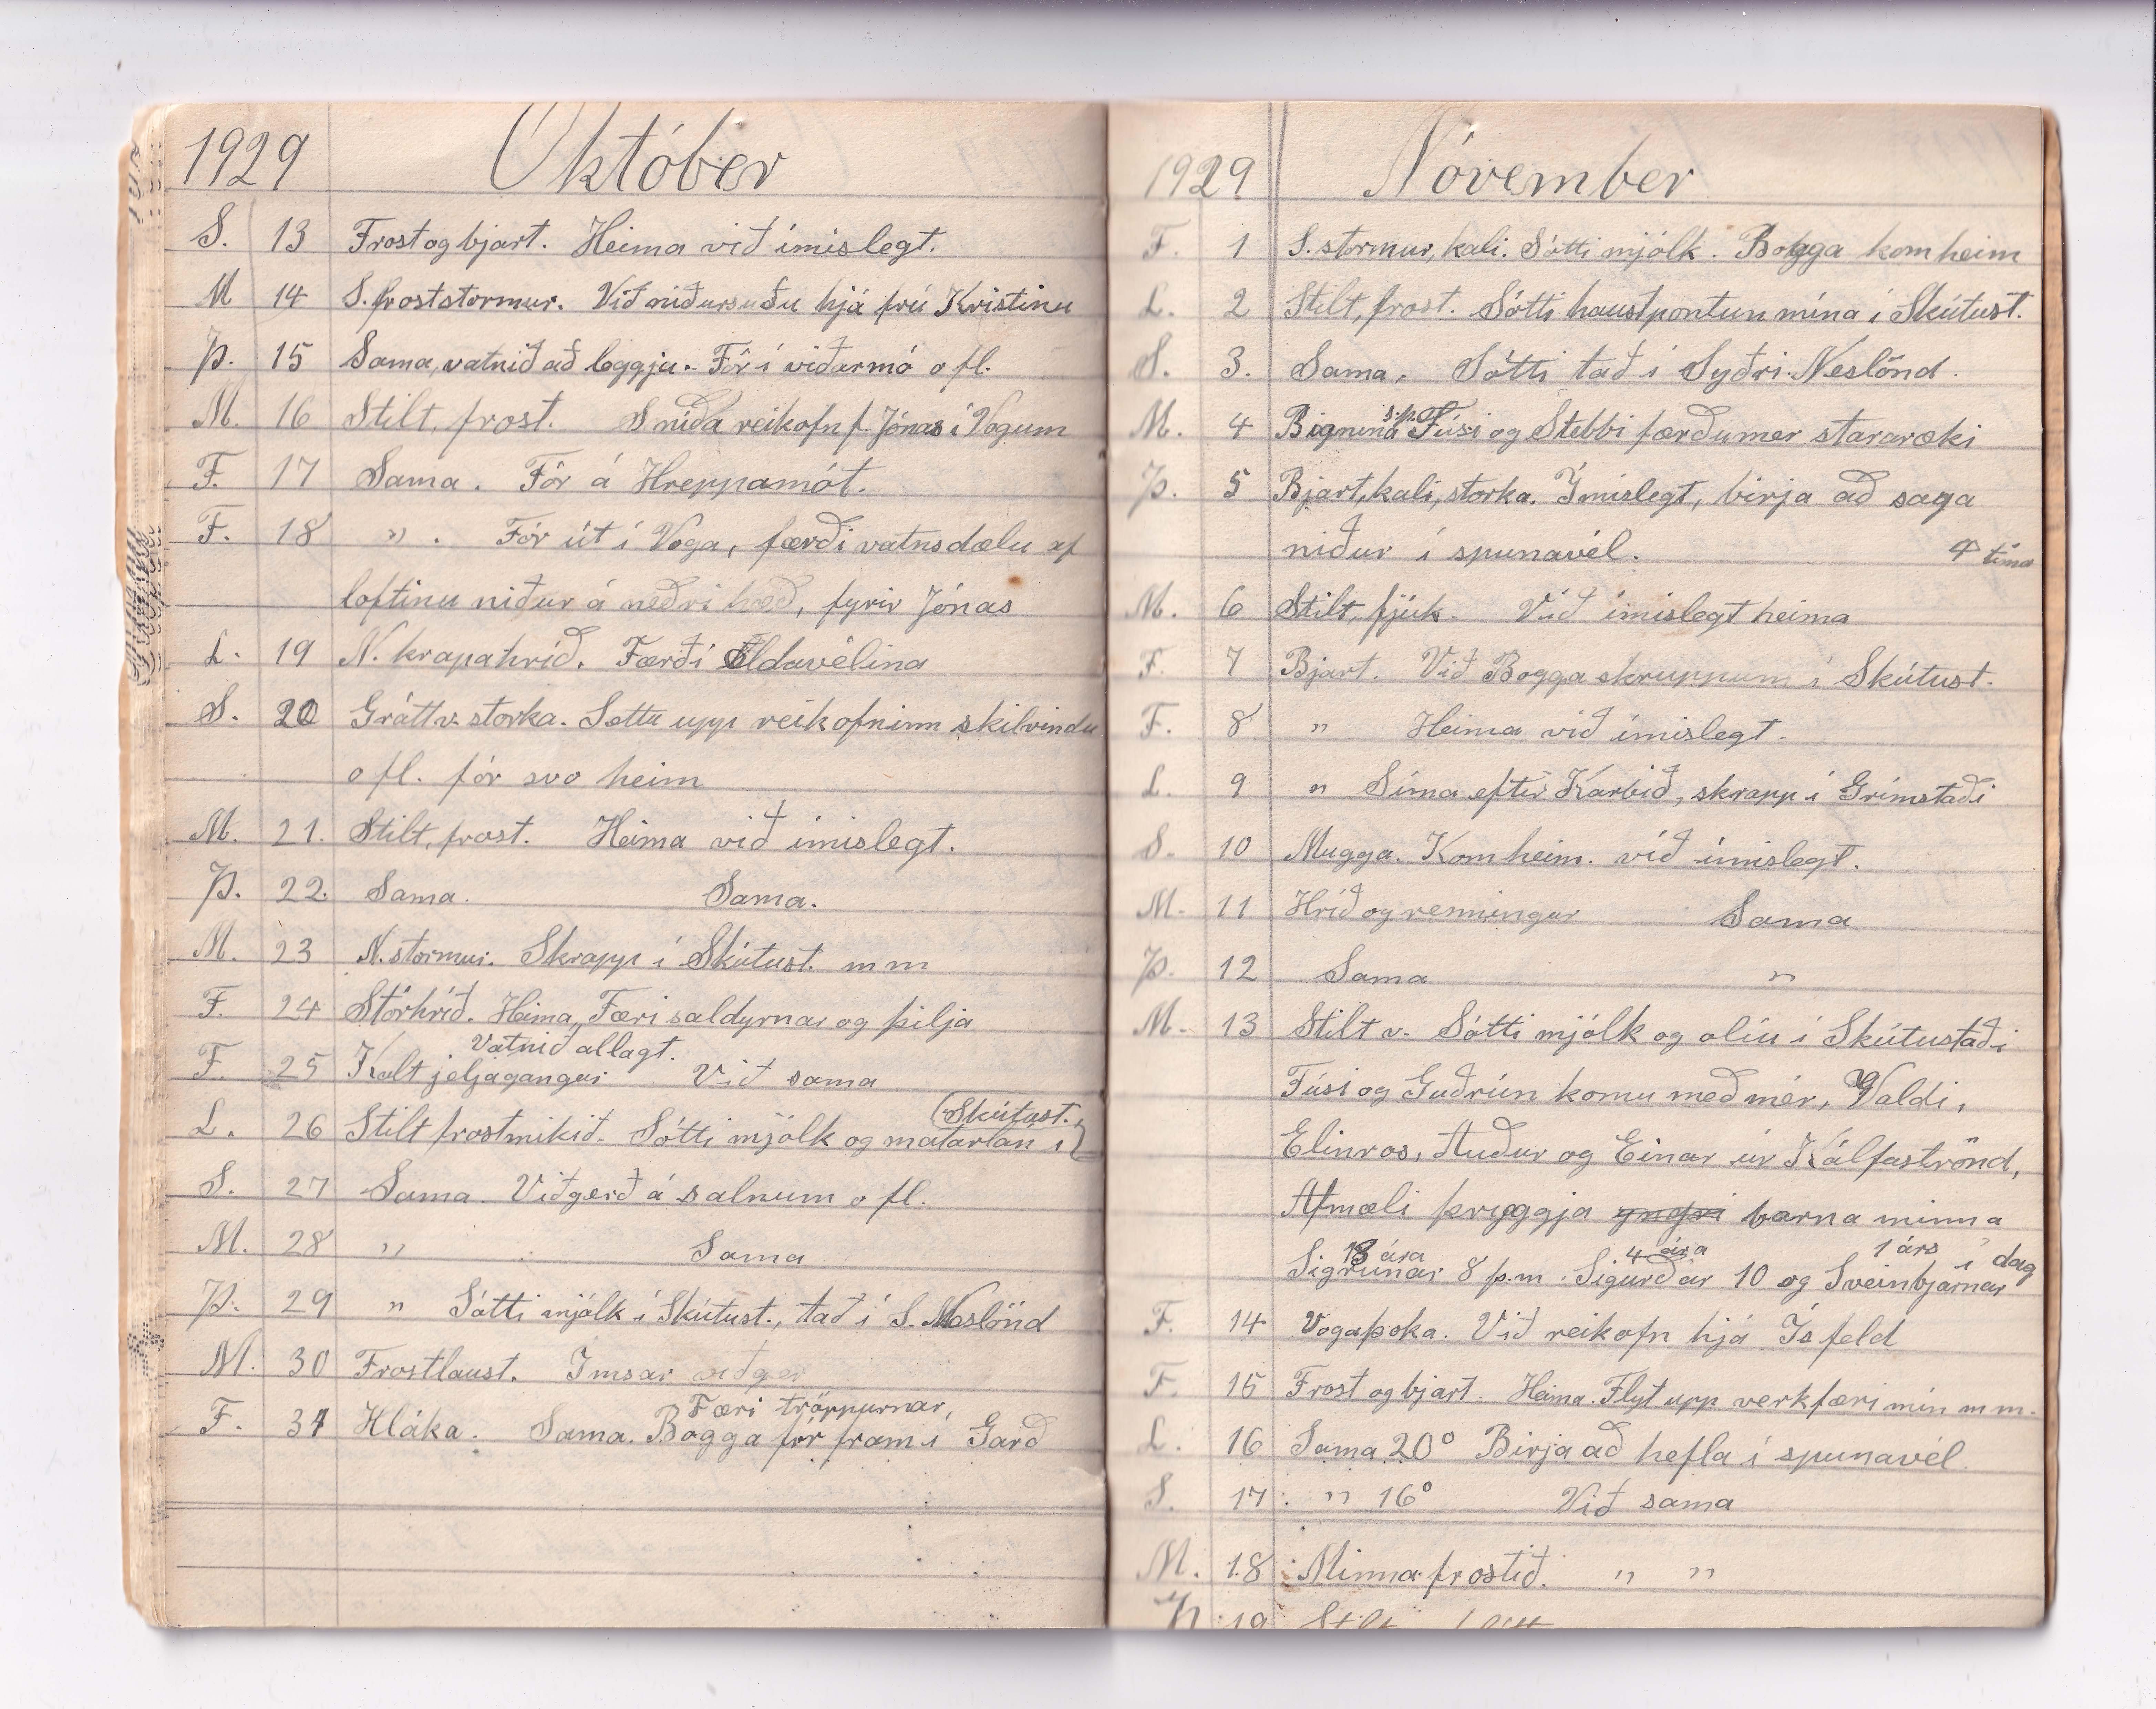 1929 Október
S. 13 Frost og bjart. Heima við ímislegt.
M 14 S. froststormur. Við niðursuðu hjá frú Kristínu
Þ. 15 Sama, vatnið að leggja. Fór í viðarmó o fl.
M. 16 Stilt, frost. Smíða reikofn f. Jónas í Vogum
F. 17 Sama. Fór á Hreppamót.
F. 18 " . Fór út í Voga, færði vatnsdælu af
loftinu niður á neðri hæð, fyrir Jónas
L. 19 N. krapahríð. Færði Eldavélina
S. 20 Grátt v. storka. Settu upp reikofninn skilvindu
o fl. fór svo heim
M. 21. Stilt, frost. Heima við ímislegt.
Þ. 22. Sama. Sama.
M. 23 N. stormur. Skrapp í Skútust. m m
F. 24 Stórhríð. Heima, Færi saldyrnar og þilja
Vatnið allagt.
F. 25 Kalt jeljagangur. Við sama
(Skútust.
L. 26 Stilt frostmikið. Sótti mjólk og matarlán í
S. 27 Sama. Viðgerð á salnum o fl.
M. 28 " Sama
Þ. 29 " Sótti mjólk í Skútust., tað í S. Neslönd
M. 30 Frostlaust. Ímsar viðger
Færi tröppurnar,
F. 31 Hláka. Sama. Bogga fór fram í Garð
1929 Nóvember
F. 1 S. stormur, kali. Sótti mjólk. Bogga kom heim
L. 2 Stilt, frost. Sótti haustpöntun mína í Skútust.
S. 3. Sama. Sótti tað í Syðri-Neslönd.
s.p.
M. 4 Bignina Fúsi og Stebbi færðu mér stararæki
Þ. 5 Bjart, kali, storka. Ímislegt, birja að saga
niður í spunavél. 4 tíma
M. 6 Stilt, fjúk. Við ímislegt heima
F. 7 Bjart. Við Bogga skruppum í Skútust.
F. 8 " Heima við ímislegt.
L. 9 " Síma eftir Karbið, skrapp í Grímstaði
S. 10 Mugga. Kom heim. við ímislegt.
M. 11 Hríð og renningur Sama
Þ. 12 Sama "
M. 13 Stilt v. Sótti mjólk og olíu í Skútustaði
Fúsi og Guðrún komu með mér, Valdi,
Elinros, Auður og Einar úr Kálfaströnd,
Afmæli þryggja yngri barna minna
13 ára 4 ára 1 árs í dag
Sigrúnar 8 þ.m. Sigurðar 10 og Sveinbjarnar
F. 14 Vogaþoka. Við reikofn hjá Ísfeld
F. 15 Frost og bjart. Heima. Flyt upp verkfæri mín m m.
L. 16 Sama 20° Birja að hefla í spunavél
S. 17 " 16° Við sama
M. 18 Minna frostið. " "
Þ. 19 Stilt